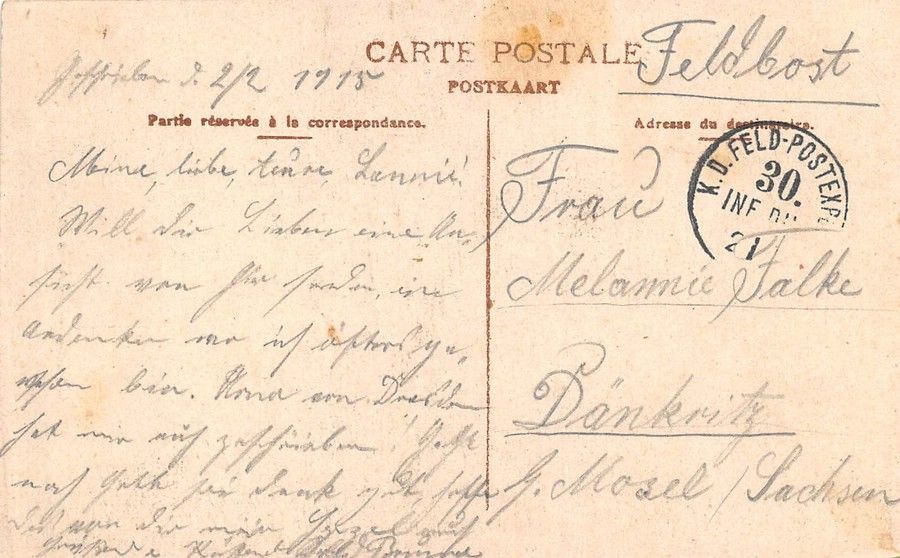 CARTE POSTALE
POSTKAART
Feldpost
Geschrieben d. 2/2 1915
Partie réservée à la correspondance.
Adresse du destinataire.
K. D. FELD-POSTEXP
30.
INF. DI
Meine, liebe, teure, Lannie!
Will dir Lieben eine An-
sicht von hier senden, im
andenken wo ich öfters ge-
wesen bin. von Dresden
hat mir auch geschrieben!
noch Gott sei dank gut, hoffe
das von dir mein auch
Frau
Melannie Falke
Dänkritz
G. Mosel / Sachsen